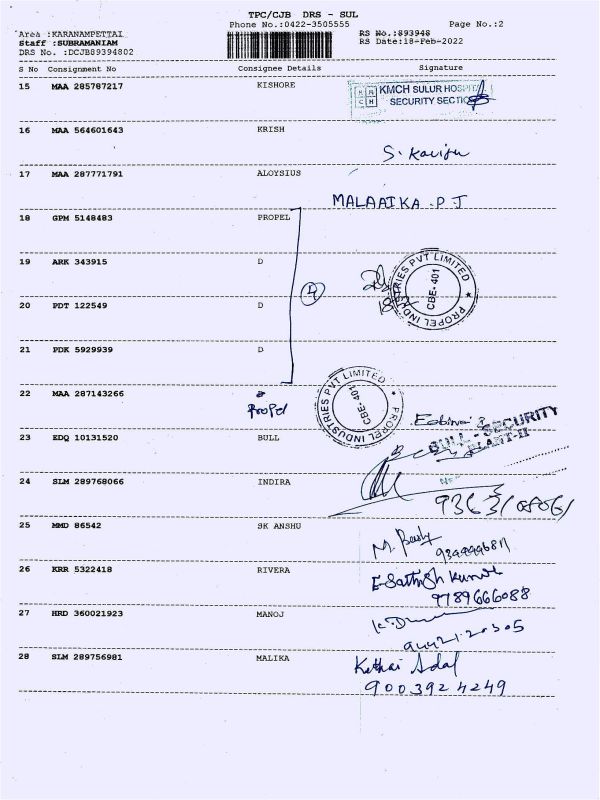 TPC/CJB DRS - SUL
Phone No.:0422-3505555
Page No.:2
Area :KARANAMPETTAI
Staff :SUBRAMANIAM
DRS No. :DCJB89394802
RS No.:893948
RS Date:18-Feb-2022
S No Consignment No Consignee Details Signature
15 MAA 285787217 KISHORE
KMCH SULUR HOSPITAL
SECURITY SECTION
16 MAA 564601643 KRISH
S.
17 MAA 287771791 ALOYSIUS
MALAAIKA .P J
18 GPM 5148483 PROPEL
19 ARK 343915 D
PROPEL INDUSTRIES PVT LIMITED
CBE-401
20 PDT 122549 D
4
21 PDK 5929939 D
22 MAA 287143266
Propel
PROPEL INDUSTRIES PVT LIMITED
CBE-401
23 EDQ 10131520 BULL
BULL - SECURITY
PLANT-II
24 SLM 289768066 INDIRA
25 MMD 86542 SK ANSHU
26 KRR 5322418 RIVERA
E-Sathish Kumar
9789666088
27 HRD 360021923 MANOJ
28 SLM 289756981 MALIKA
Kathai Adal
9003924249